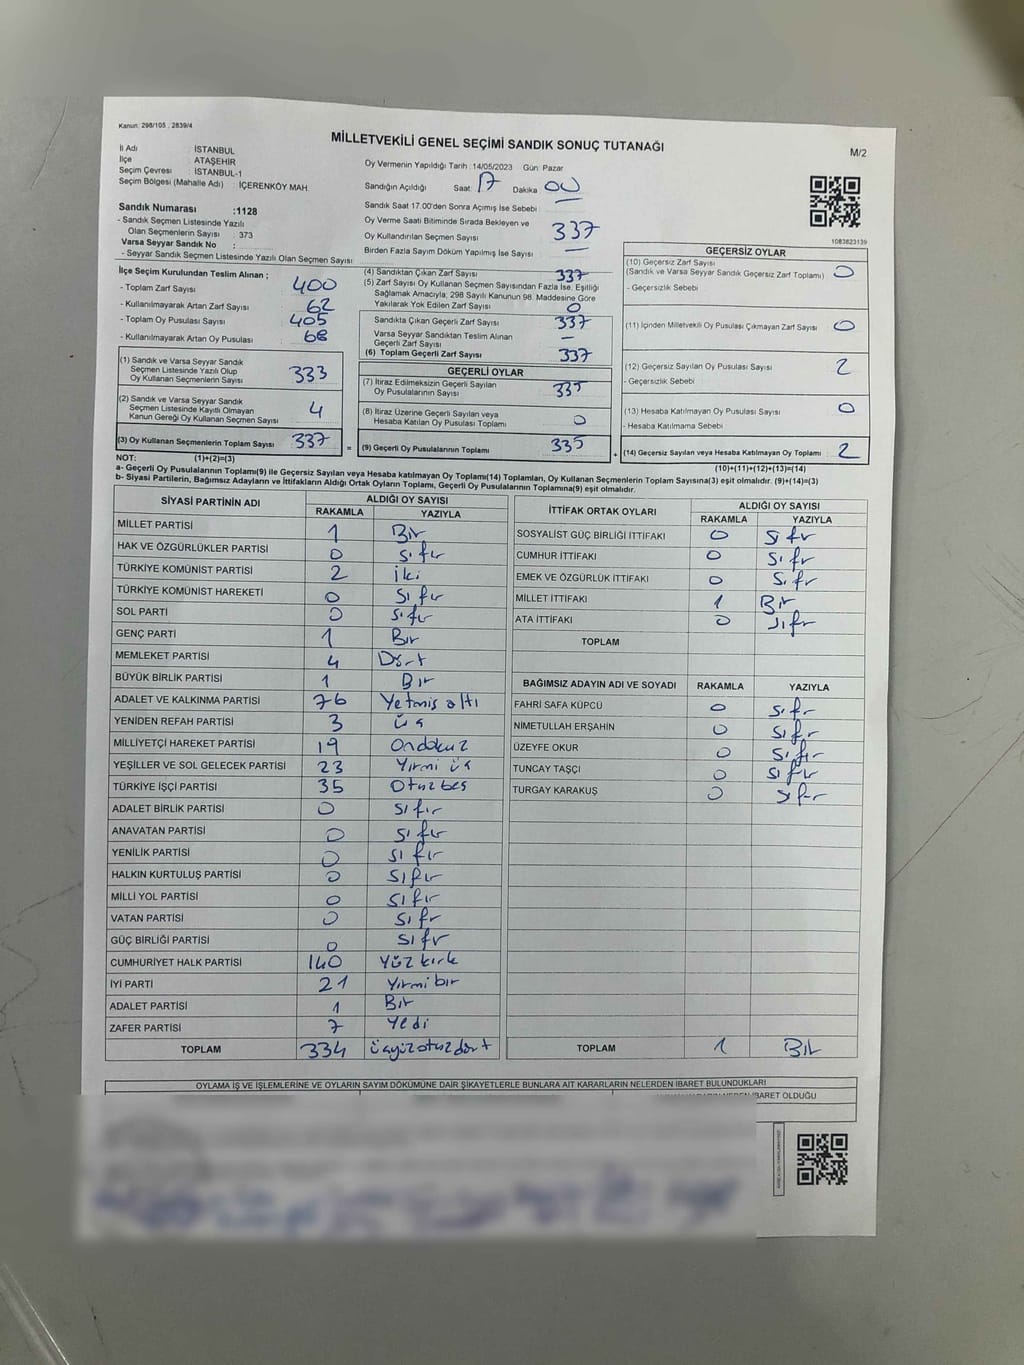 Kanun: 298/105 , 2839/4
MİLLETVEKİLİ GENEL SEÇİMİ SANDIK SONUÇ TUTANAĞI
M/2
İl Adı : İSTANBUL
İlçe : ATAŞEHİR
Seçim Çevresi : İSTANBUL-1
Seçim Bölgesi (Mahalle Adı) : İÇERENKÖY MAH.
Oy Vermenin Yapıldığı Tarih :14/05/2023 Gün: Pazar
Sandığın Açıldığı Saat: 17 Dakika 00
Sandık Saat 17.00'den Sonra Açımış İse Sebebi :
Sandık Numarası :1128
- Sandık Seçmen Listesinde Yazılı
Olan Seçmenlerin Sayısı : 373
Varsa Seyyar Sandık No :
- Seyyar Sandık Seçmen Listesinde Yazılı Olan Seçmen Sayısı
Oy Verme Saati Bitiminde Sırada Bekleyen ve
Oy Kullandırılan Seçmen Sayısı 337
Birden Fazla Sayım Döküm Yapılmış İse Sayısı : —
1083823139
İlçe Seçim Kurulundan Teslim Alınan ;
- Toplam Zarf Sayısı : 400
- Kullanılmayarak Artan Zarf Sayısı : 62
- Toplam Oy Pusulası Sayısı : 405
- Kullanılmayarak Artan Oy Pusulası : 68
(1) Sandık ve Varsa Seyyar Sandık
Seçmen Listesinde Yazılı Olup
Oy Kullanan Seçmenlerin Sayısı 333
(2) Sandık ve Varsa Seyyar Sandık
Seçmen Listesinde Kayıtlı Olmayan
Kanun Gereği Oy Kullanan Seçmen Sayısı 4
(3) Oy Kullanan Seçmenlerin Toplam Sayısı 337
(4) Sandıktan Çıkan Zarf Sayısı 337
(5) Zarf Sayısı Oy Kullanan Seçmen Sayısından Fazla İse, Eşitliği
Sağlamak Amacıyla, 298 Sayılı Kanunun 98. Maddesine Göre
Yakılarak Yok Edilen Zarf Sayısı 0
Sandıkta Çıkan Geçerli Zarf Sayısı 337
Varsa Seyyar Sandıktan Teslim Alınan
Geçerli Zarf Sayısı —
(6) Toplam Geçerli Zarf Sayısı 337
GEÇERLİ OYLAR
(7) İtiraz Edilmeksizin Geçerli Sayılan
Oy Pusulalarının Sayısı 335
(8) İtiraz Üzerine Geçerli Sayılan veya
Hesaba Katılan Oy Pusulası Toplamı 0
= (9) Geçerli Oy Pusulalarının Toplamı 335 +
GEÇERSİZ OYLAR
(10) Geçersiz Zarf Sayısı
(Sandık ve Varsa Seyyar Sandık Geçersiz Zarf Toplamı) 0
- Geçersizlik Sebebi
(11) İçinden Milletvekili Oy Pusulası Çıkmayan Zarf Sayısı 0
(12) Geçersiz Sayılan Oy Pusulası Sayısı 2
- Geçersizlik Sebebi
(13) Hesaba Katılmayan Oy Pusulası Sayısı 0
- Hesaba Katılmama Sebebi
(14) Geçersiz Sayılan veya Hesaba Katılmayan Oy Toplamı 2
NOT: (1)+(2)=(3)
(10)+(11)+(12)+(13)=(14)
a- Geçerli Oy Pusulalarının Toplamı(9) ile Geçersiz Sayılan veya Hesaba katılmayan Oy Toplamı(14) Toplamları, Oy Kullanan Seçmenlerin Toplam Sayısına(3) eşit olmalıdır. (9)+(14)=(3)
b- Siyasi Partilerin, Bağımsız Adayların ve İttifakların Aldığı Ortak Oyların Toplamı, Geçerli Oy Pusulalarının Toplamına(9) eşit olmalıdır.
SİYASİ PARTİNİN ADI ALDIĞI OY SAYISI
RAKAMLA YAZIYLA
MİLLET PARTİSİ 1 Bir
HAK VE ÖZGÜRLÜKLER PARTİSİ 0 sıfır
TÜRKİYE KOMÜNİST PARTİSİ 2 iki
TÜRKİYE KOMÜNİST HAREKETİ 0 sıfır
SOL PARTİ 0 sıfır
GENÇ PARTİ 1 Bir
MEMLEKET PARTİSİ 4 Dört
BÜYÜK BİRLİK PARTİSİ 1 Bir
ADALET VE KALKINMA PARTİSİ 76 Yetmiş altı
YENİDEN REFAH PARTİSİ 3 üç
MİLLİYETÇİ HAREKET PARTİSİ 19 Ondokuz
YEŞİLLER VE SOL GELECEK PARTİSİ 23 Yirmi üç
TÜRKİYE İŞÇİ PARTİSİ 35 Otuzbeş
ADALET BİRLİK PARTİSİ 0 sıfır
ANAVATAN PARTİSİ 0 sıfır
YENİLİK PARTİSİ 0 sıfır
HALKIN KURTULUŞ PARTİSİ 0 sıfır
MİLLİ YOL PARTİSİ 0 sıfır
VATAN PARTİSİ 0 sıfır
GÜÇ BİRLİĞİ PARTİSİ 0 sıfır
CUMHURİYET HALK PARTİSİ 140 Yüzkırk
İYİ PARTİ 21 Yirmibir
ADALET PARTİSİ 1 Bir
ZAFER PARTİSİ 7 Yedi
TOPLAM 334 üçyüzotuzdört
İTTİFAK ORTAK OYLARI ALDIĞI OY SAYISI
RAKAMLA YAZIYLA
SOSYALİST GÜÇ BİRLİĞİ İTTİFAKI 0 sıfır
CUMHUR İTTİFAKI 0 sıfır
EMEK VE ÖZGÜRLÜK İTTİFAKI 0 sıfır
MİLLET İTTİFAKI 1 Bir
ATA İTTİFAKI 0 sıfır
TOPLAM
BAĞIMSIZ ADAYIN ADI VE SOYADI RAKAMLA YAZIYLA
FAHRİ SAFA KÜPCÜ 0 sıfır
NİMETULLAH ERŞAHİN 0 sıfır
ÜZEYFE OKUR 0 sıfır
TUNCAY TAŞÇI 0 sıfır
TURGAY KARAKUŞ 0 sıfır
TOPLAM 1 Bir
OYLAMA İŞ VE İŞLEMLERİNE VE OYLARIN SAYIM DÖKÜMÜNE DAİR ŞİKAYETLERLE BUNLARA AİT KARARLARIN NELERDEN İBARET BULUNDUKLARI
İBARET OLDUĞU